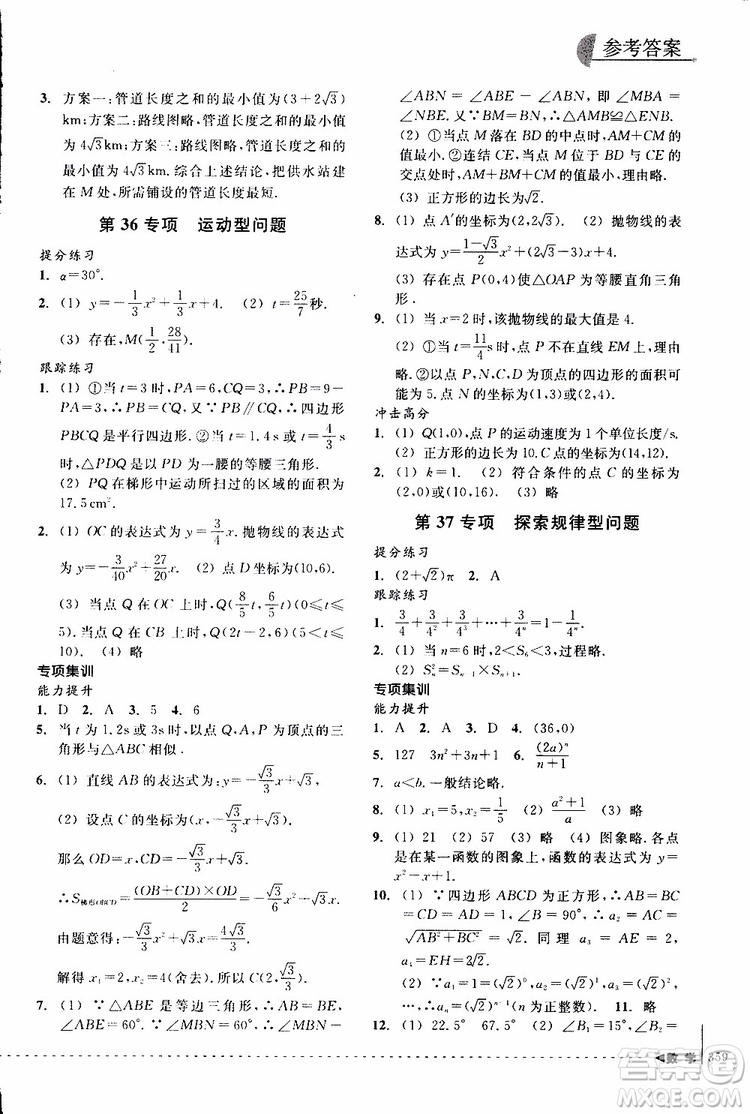 参考答案
3. 方案一:管道长度之和的最小值为(3+2√3)
km;方案二:路线图略,管道长度之和的最小值
为4√3km;方案三:路线图略,管道长度之和的
最小值为4√3km.综合上述结论,把供水站建
在M处,所需铺设的管道长度最短.
第36专项 运动型问题
提分练习
1. α=30°.
2. (1) y=-1/3x²+1/3x+4. (2) t=25/7秒.
(3) 存在,M(1/2,28/41).
跟踪练习
1. (1) ①当t=3时,PA=6,∴PB=9-
PA=3,∴PB=CQ,又∵PB∥CQ,∴四边形
PBCQ是平行四边形.②当t=1.4s或t=4/3s
时,△PDQ是以PD为一腰的等腰三角形.
(2) PQ在梯形中运动所扫过的区域的面积为
17.5cm².
2. (1) OC的表达式为y=3/4x.抛物线的表达式
为y=-3/40x²+27/20x. (2) 点D在(10,6).
(3) 当点Q在OC上时,Q(8/5t,6/5t)(0≤t≤
5).当点Q在CB上时,Q(2t-2,6)(5≤t≤
10). (4) 略
专项集训
能力提升
1. D 2. A 3. 5 4. 6
5. 当t为1.2s或3s时,以点Q、A、P为顶点的三
角形与△ABC相似.
6. (1) 直线AB的表达式为:y=-√3/3x+√3.
(2) 设点C的坐标为(x,-√3/3x+√3).
那么OD=x,CD=-√3/3x+√3.
∴S梯形OBCD=(OB+CD)×OD/2=-√3/6x²+√3x.
由题意得:-√3/6x²+√3x=4√3/3.
解得x₁=2,x₂=4(舍去),∴C(2,√3/3).
7. (1) ∵△ABE是等边三角形,∴AB=BE,
∠ABE=60°.∵∠MBN=60°,∴∠MBN-
∠ABN=∠ABE-∠ABN,即∠MBA=
∠NBE.又∵BM=BN,∴△AMB≌△ENB.
(2) ①当点M落在BD的中点时,AM+CM的
值最小.②连结CE,当点M位于BD与CE的
交点处时,AM+BM+CM的值最小.理由略.
(3) 正方形的边长为√2.
8. (1) 点A′的坐标为(2,2√3). (2) 抛物线的表
达式为y=(1-√3)/2x²+(2√3-1)x.
(3) 存在点P(0,4)使△OAP为等腰直角三角
形.
9. (1) 当x=2时,该抛物线的最大值是4.
(2) ①当t=11/4s时,点P不在直线EM上,理由
略.②以P、N、C、D为顶点的四边形的面积可
能为5.点N的坐标为(1,3)或(2,4).
冲击高分
1. (1) Q(1,0),点P的运动速度为1个单位长度/s.
(2) 正方形的边长为10.C的坐标为(14,12).
2. (1) k=1. (2) 符合条件的点C的坐标为
(2,0)或(16,10). (3) 略
第37专项 探索规律型问题
提分练习
1. (2+√2)π 2. A
跟踪练习
1. 3/4+3/4²+3/4³+…+3/4ⁿ=1-1/4ⁿ.
2. (1) 当n=6时,2<S₆<3,过程略.
(2) Sₙ²=Sₙ₋₁×Sₙ₊₁.
专项集训
能力提升
1. A 2. A 3. D 4. (36,0)
5. 127 3n²+3n+1 6. (2a)ⁿ/n+1
7. a<b.一般结论略.
8. (1) x₁=5,x₂=1/5 (2) a²+1/a (3) 略
9. (1) 21 (2) 57 (3) 略 (4) 图象略.各点
是在某一函数的图象上,函数的表达式为
10. (1) ∵四边形ABCD为正方形,∴AB=BC
=CD=AD=1,∠B=90°,∴a₂=AC=
√AB²+BC²=√2.同理a₃=AE=2,
a₄=EH=2√2.
(2) ∵a₁=1=(√2)⁰,a₂=√2=(√2)¹,a₃=2=
(√2)²,∴aₙ=(√2)ⁿ⁻¹(n为正整数). 11. 略
12. (1) 22.5° 67.5° (2) ∵∠B₁=∠B₁′=
◀数学 359
答案圈